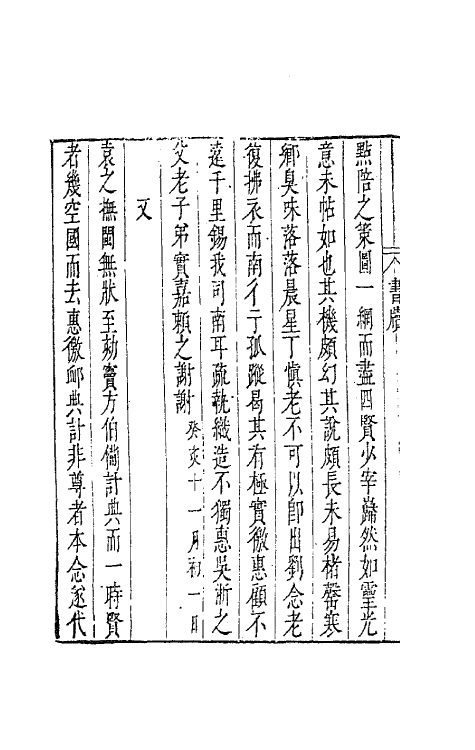 書牘
點陪之策圖一網而盡四賢少宰巋然如靈光
意未帖如也其機頗幻其說頗長未易楮罄寒
鄉臭味落落晨星丁慎老不可以卽出劉念老
復拂衣而南彳亍孤蹤曷其有極實徼惠顧不
遠千里錫我司南耳疏執織造不獨惠吳浙之
父老子弟實嘉頼之謝謝癸亥十一月初一日
又
袁之撫閩無狀至劾竇方伯備計典而一時賢
者幾空國而去惠徼邮典計非尊者本念遂代